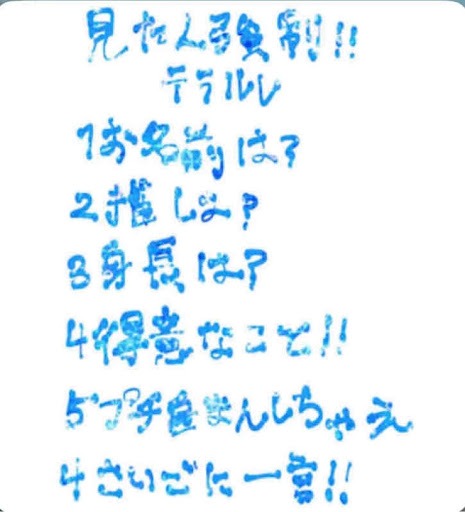 見たん強制!!
テラルレ
1お名前は?
2推しは?
3身長は?
4得意なこと!!
5プチ自まんしちゃえ
4さいごに一言!!